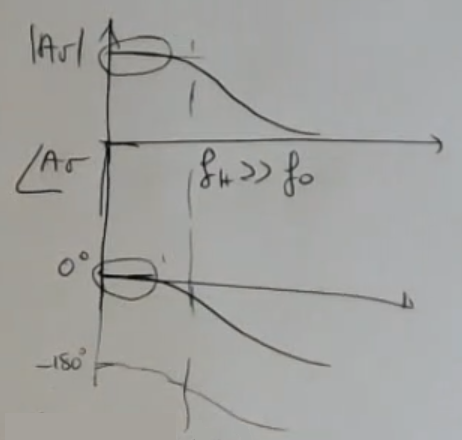 |Av|
∠Av
fH >> fo
0°
-180°